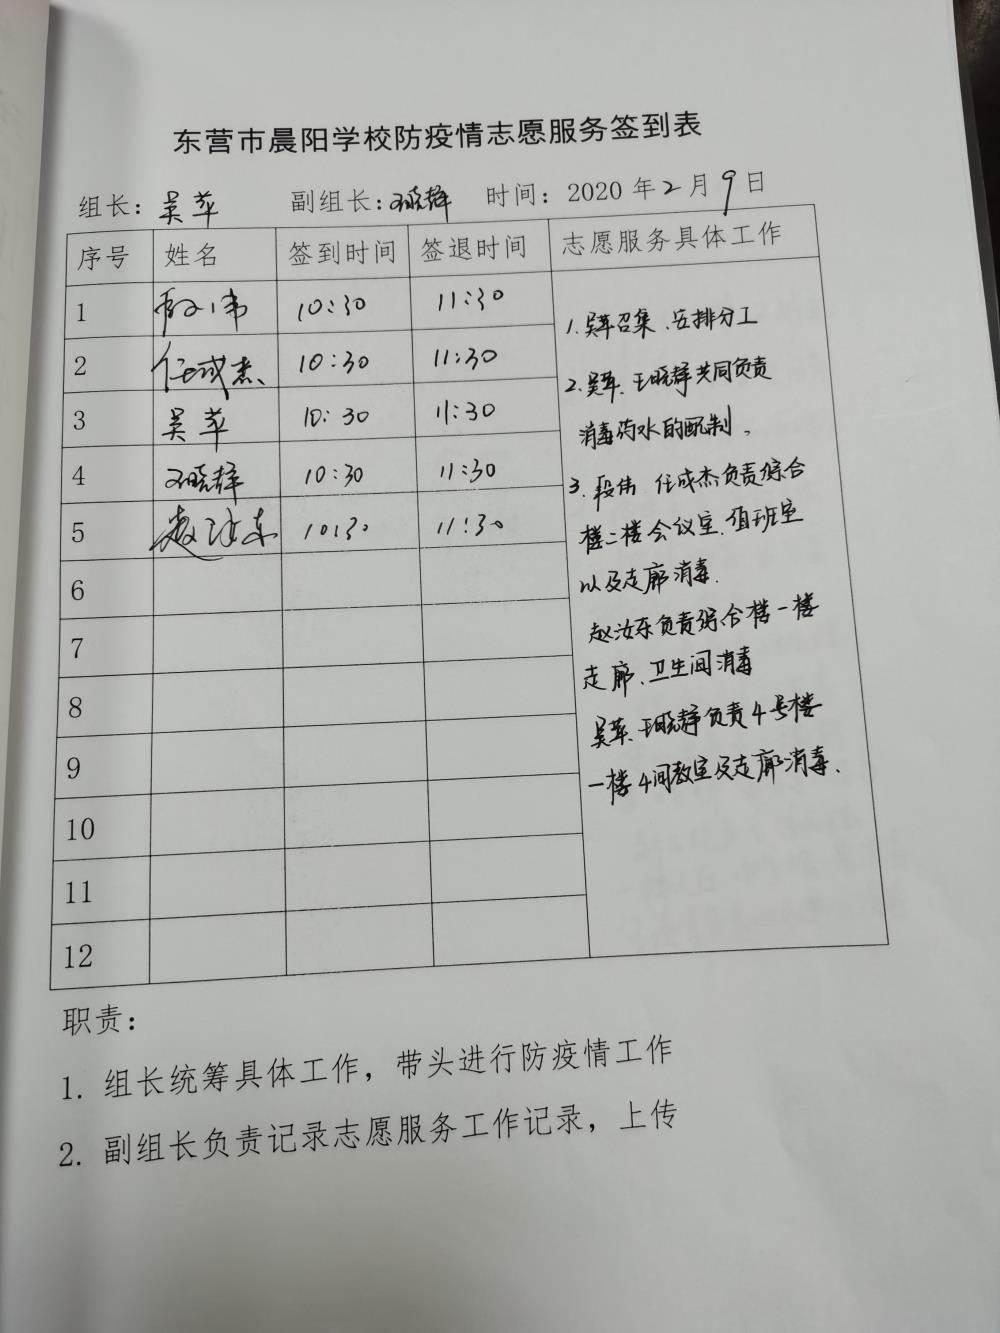 东营市晨阳学校防疫情志愿服务签到表
组长：吴苹 副组长：王晓静 时间：2020年2月9日
序号 姓名 签到时间 签退时间 志愿服务具体工作
1 段伟 10:30 11:30
2 任成杰 10:30 11:30
3 吴苹 10:30 11:30
4 王晓静 10:30 11:30
5 赵汝东 10:30 11:30
6
7
8
9
10
11
12
1.吴苹召集、安排分工
2.吴苹、王晓静共同负责
消毒药水的配制。
3.段伟 任成杰负责综合
楼二楼会议室、值班室
以及走廊消毒.
赵汝东负责综合楼一楼
走廊、卫生间消毒
吴苹、王晓静负责4号楼
一楼4间教室及走廊消毒、
职责：
1. 组长统筹具体工作，带头进行防疫情工作
2. 副组长负责记录志愿服务工作记录，上传